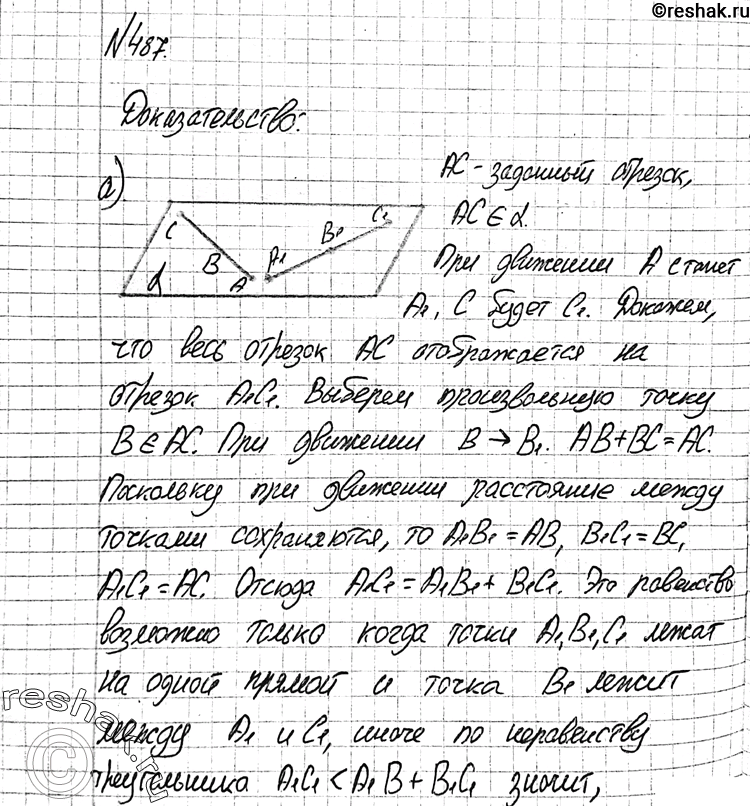 ©reshak.ru
№487.
Доказательство:
а)
АС - заданный отрезок,
АС ∈ α.
При движении А станет
А₁, С будет С₁. Докажем,
C
B
A
A₁
B₁
C₁
α
что весь отрезок АС отображается на
отрезок А₁С₁. Выберем произвольную точку
В ∈ АС. При движении В → В₁. АВ+ВС=АС.
Поскольку при движении расстояние между
точками сохраняются, то А₁В₁=АВ, В₁С₁=ВС,
А₁С₁=АС. Отсюда А₁С₁=А₁В₁+В₁С₁. Это равенство
возможно только когда точки А₁,В₁,С₁ лежат
на одной прямой и точка В₁ лежит
между А₁ и С₁, иначе по неравенству
треугольника А₁С₁<А₁В+В₁С₁ значит,
reshak.ru